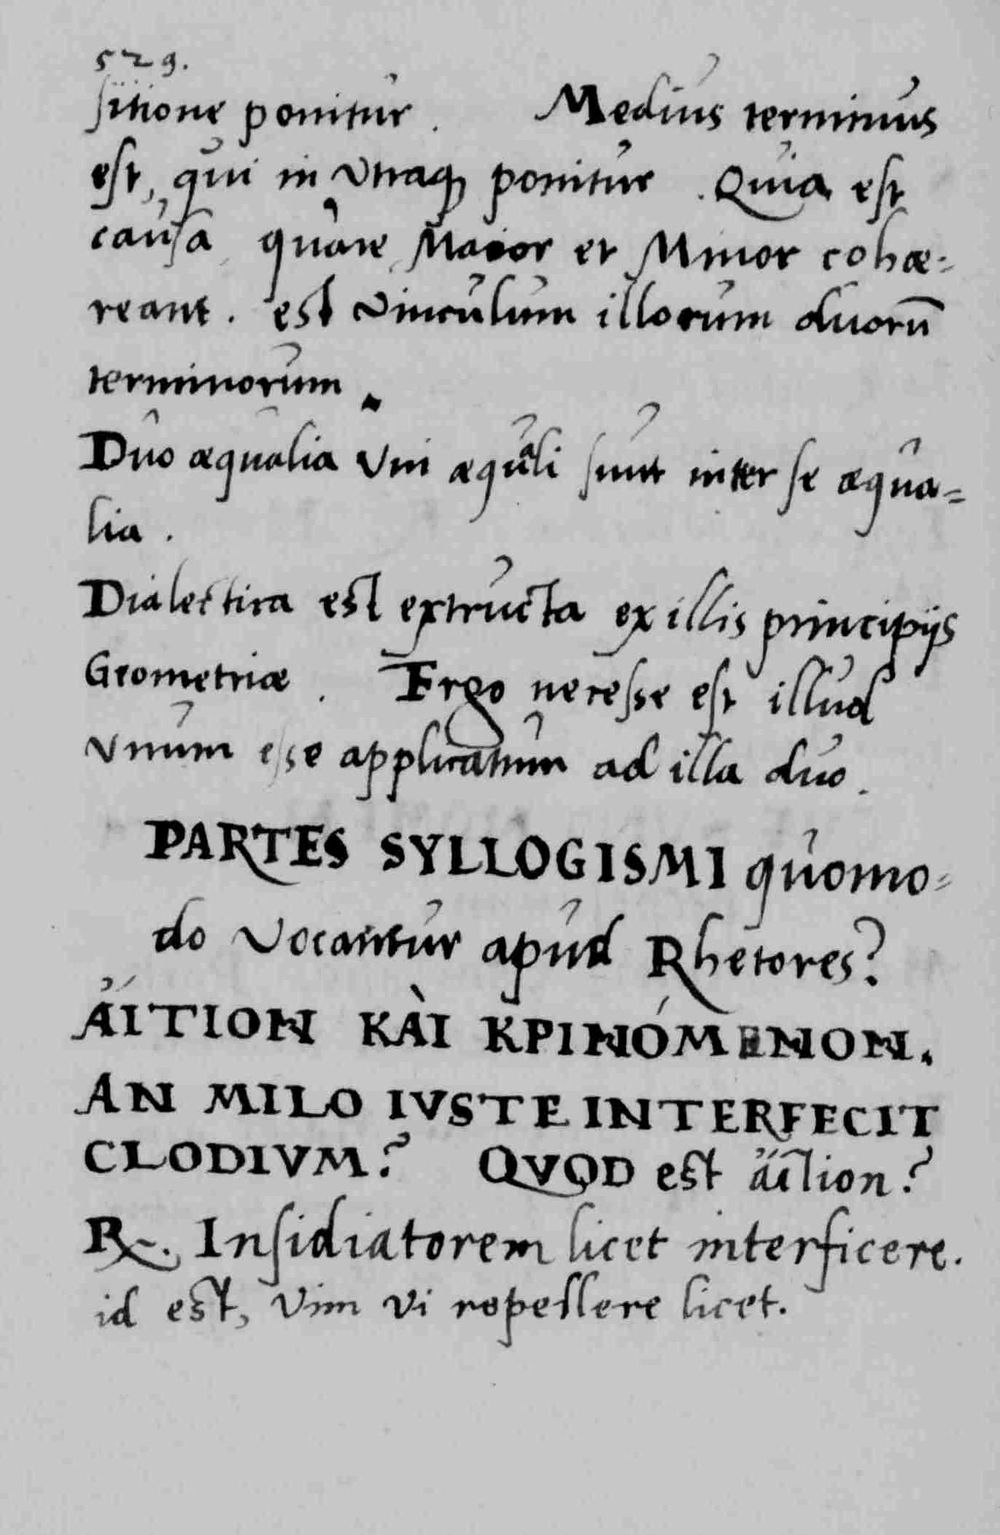 529.
sitione ponitur. Medius terminus
est, qui in vtraq; ponitur. Quia est
causa quare Maior et Minor cohæ=
reant. est vinculum illorum duorū
terminorum.
Duo æqualia vni æquali sunt inter se æqua=
lia.
Dialectica est extructa ex illis principijs
Geometriæ. Ergo necesse est illud
vnum esse applicatum ad illa duo.
PARTES SYLLOGISMI quomo=
do vocantur apud Rhetores?
ἌITION KÀI KPINÓMENON.
AN MILO IVSTE INTERFECIT
CLODIVM? QVOD est ἄition?
R. Insidiatorem licet interficere.
id est, vim vi repellere licet.